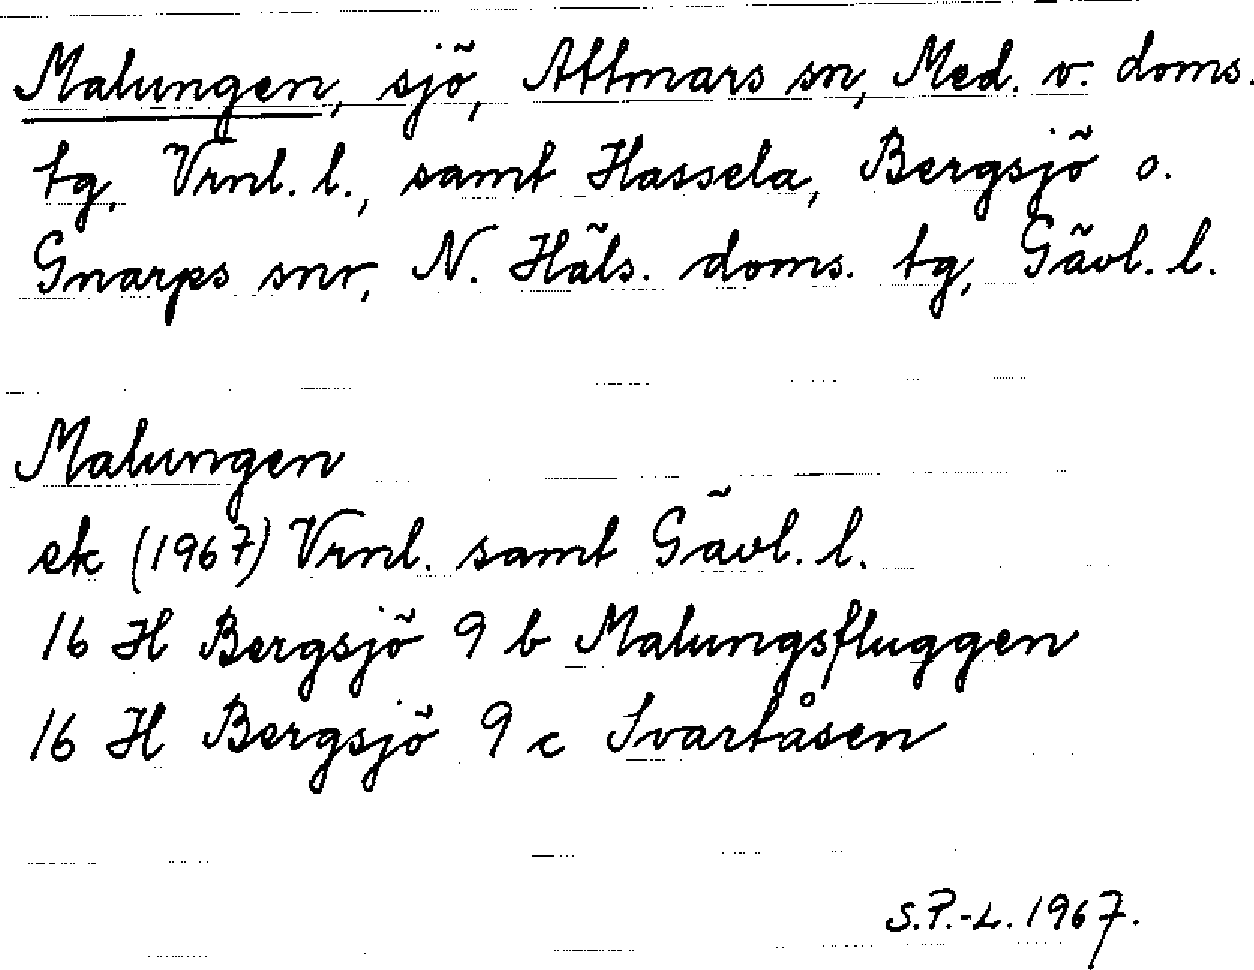 Malungen, sjö, Attmars sn, Med. v. doms.
tg, Vrnl. l., samt Hassela, Bergsjö o.
Gnarps snr, N. Häls. doms. tg, Gävl. l.
Malungen
ek (1967) Vrnl. samt Gävl. l.
16 H Bergsjö 9 b Malungsfluggen
16 H Bergsjö 9 c Svartåsen
S.P.-L. 1967.